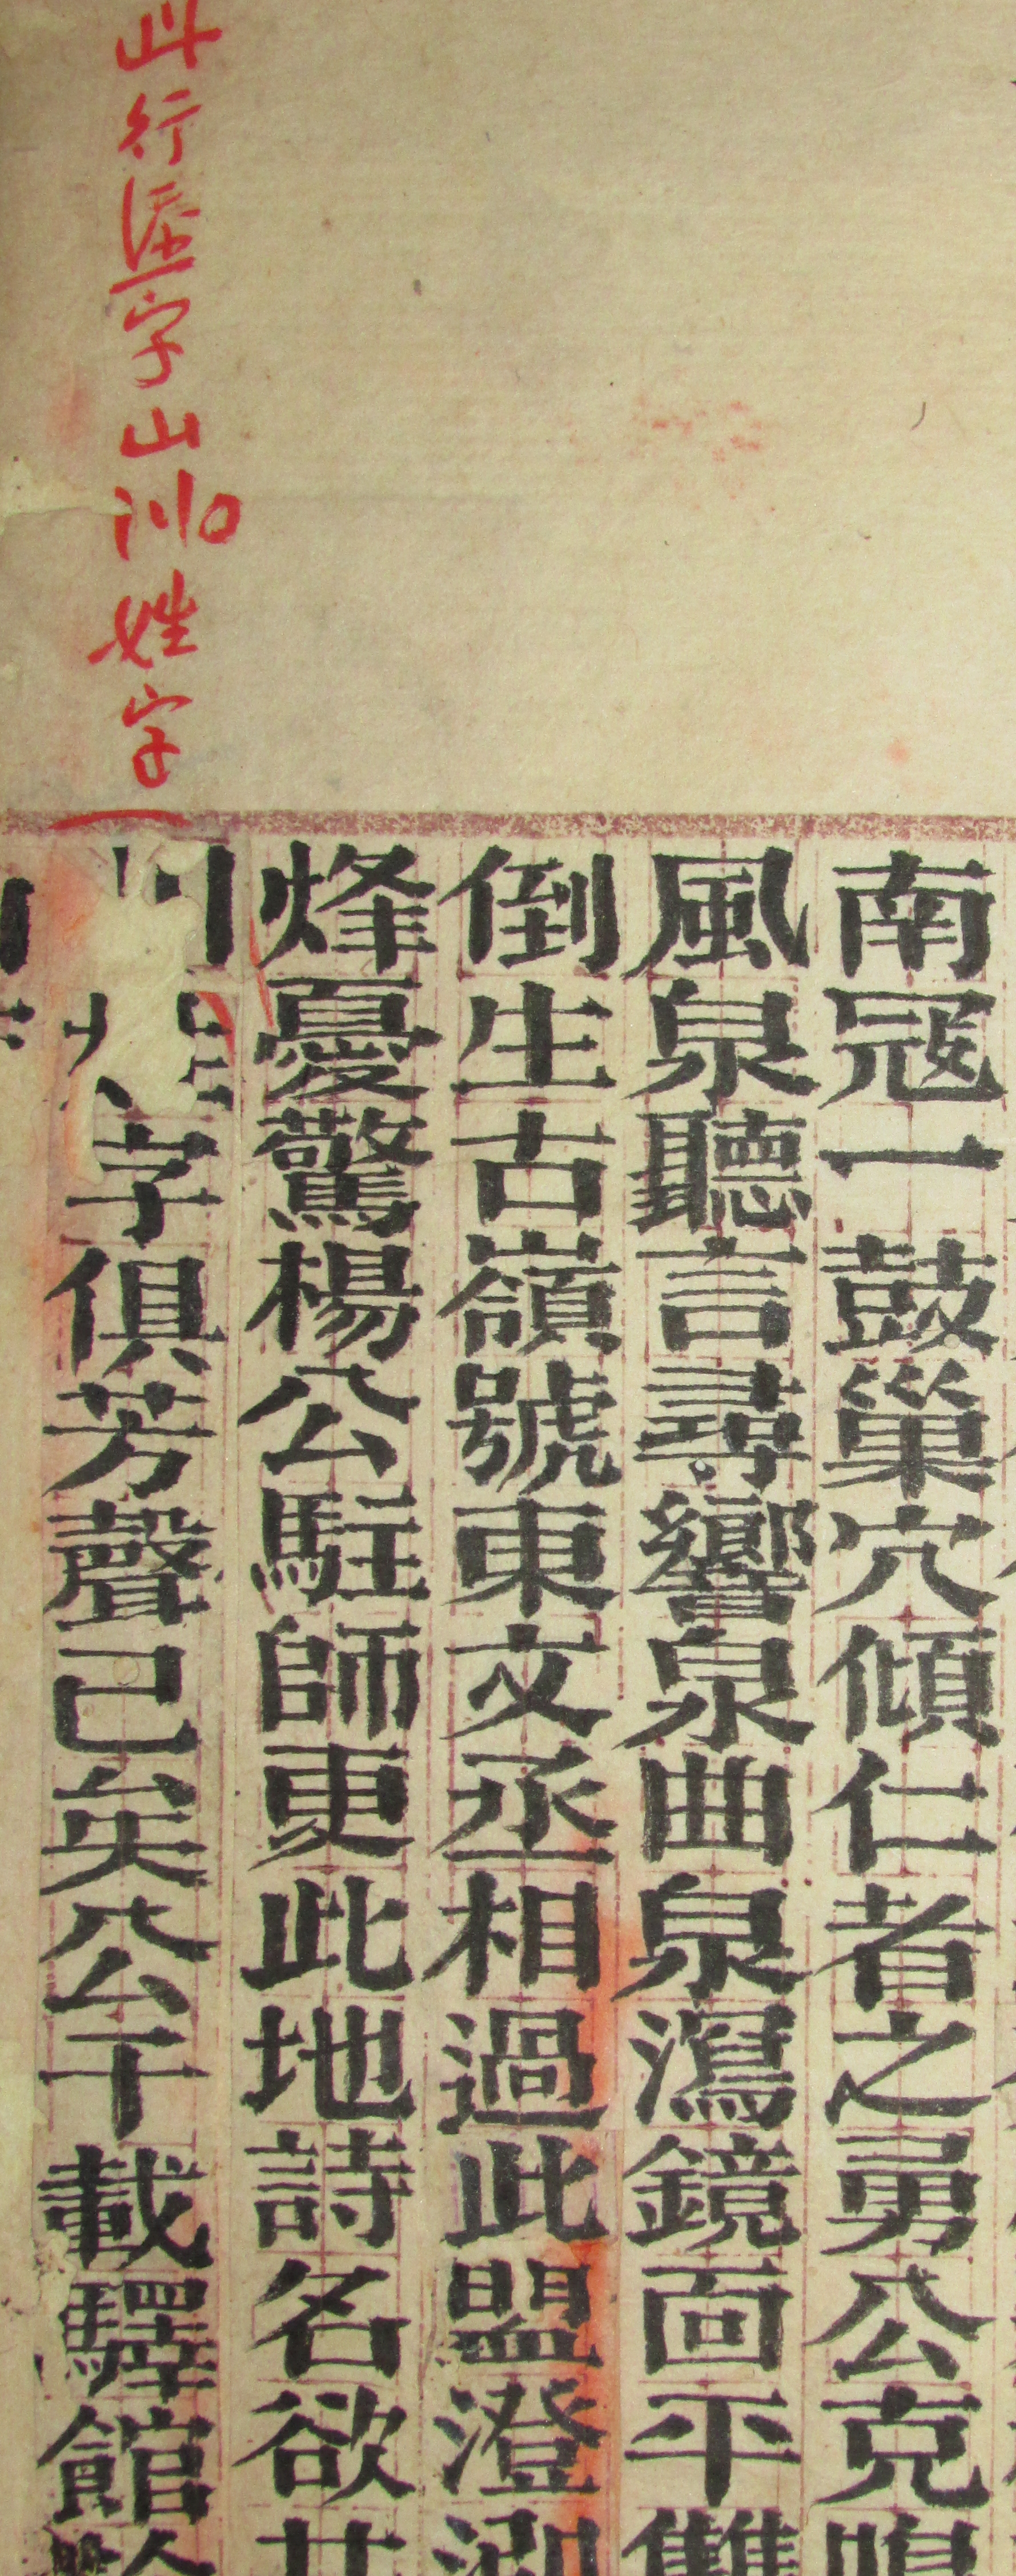 南冠一鼓巢穴傾仁者之勇公克
風泉聽言尋響泉曲泉瀉鏡面平
倒生古嶺號東文丞相過此盟澄
烽憂驚楊公駐師更此地詩名欲
字俱芳聲已矣公千載驛館
此行添字山川姓字